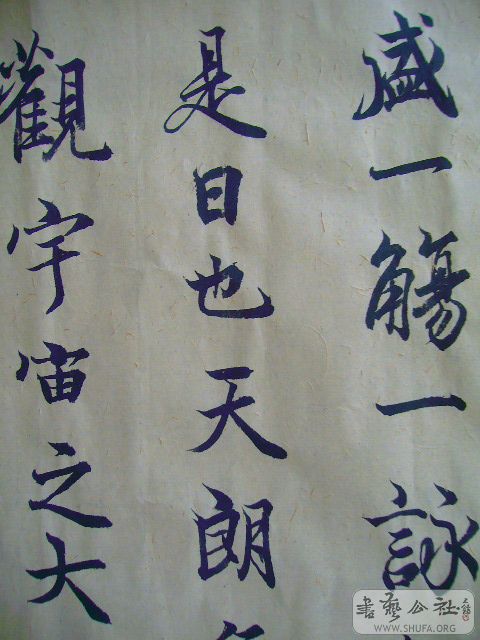 盛一觴一詠
是日也天朗
觀宇宙之大
書藝公社
WWW.SHUFA.ORG